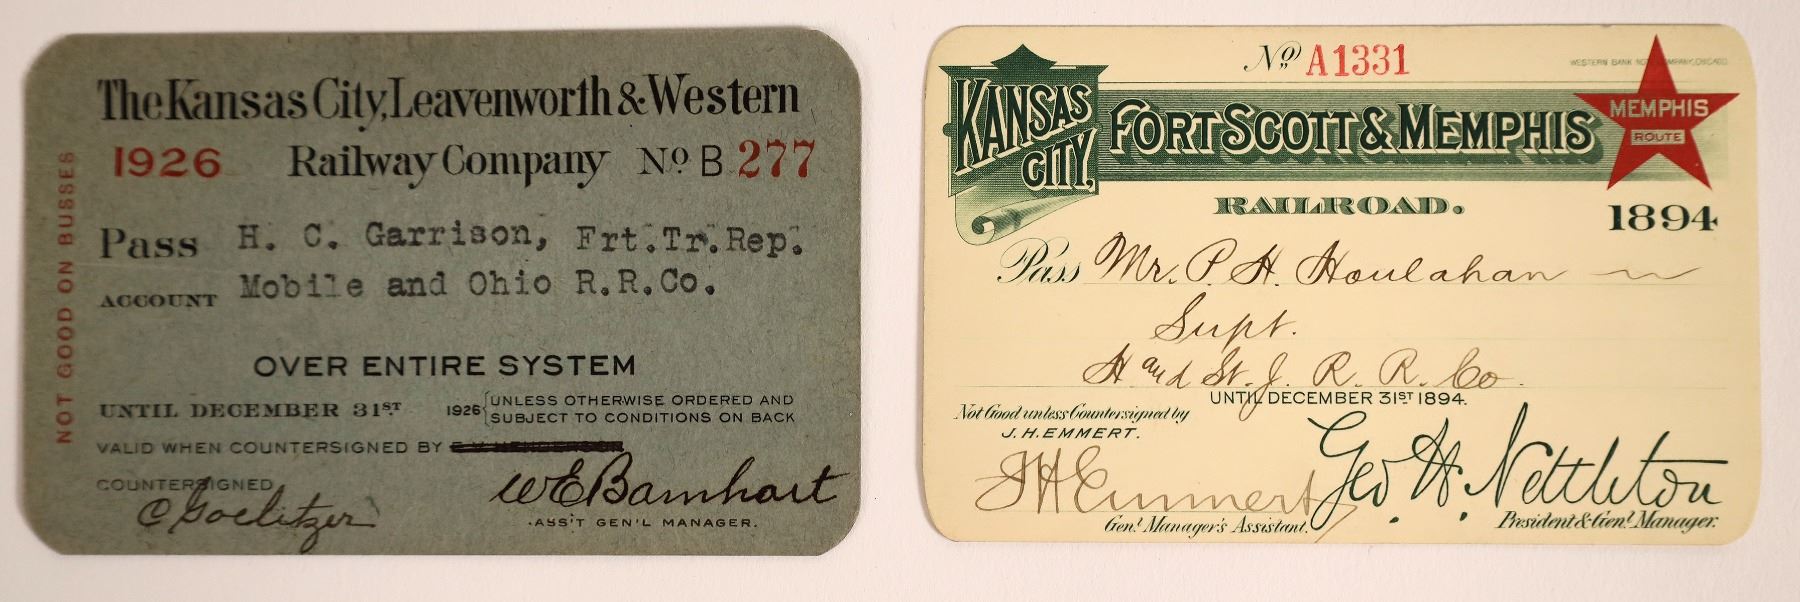 The Kansas City, Leavenworth & Western
1926 Railway Company No. B 277
NOT GOOD ON BUSSES
Pass H. C. Garrison, Frt.Tr.Rep.
ACCOUNT Mobile and Ohio R.R.Co.
OVER ENTIRE SYSTEM
UNTIL DECEMBER 31ST 1926 { UNLESS OTHERWISE ORDERED AND
SUBJECT TO CONDITIONS ON BACK
VALID WHEN COUNTERSIGNED BY
COUNTERSIGNED
C Goelitzer
W E Barnhart
ASS'T GEN'L MANAGER.
No. A1331
WESTERN BANK NOTE COMPANY, CHICAGO
KANSAS CITY, FORT SCOTT & MEMPHIS
MEMPHIS
ROUTE
RAILROAD.
1894
Pass Mr. P. H. Houlahan
Supt.
H and St. J. R. R. Co.
UNTIL DECEMBER 31ST 1894.
Not Good unless Countersigned by
J. H. EMMERT.
J H Emmert
Genl. Manager's Assistant.
Geo. H. Nettleton
President & Genl. Manager.